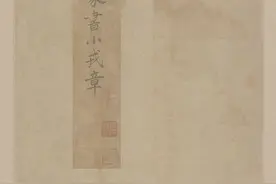 書小戎章